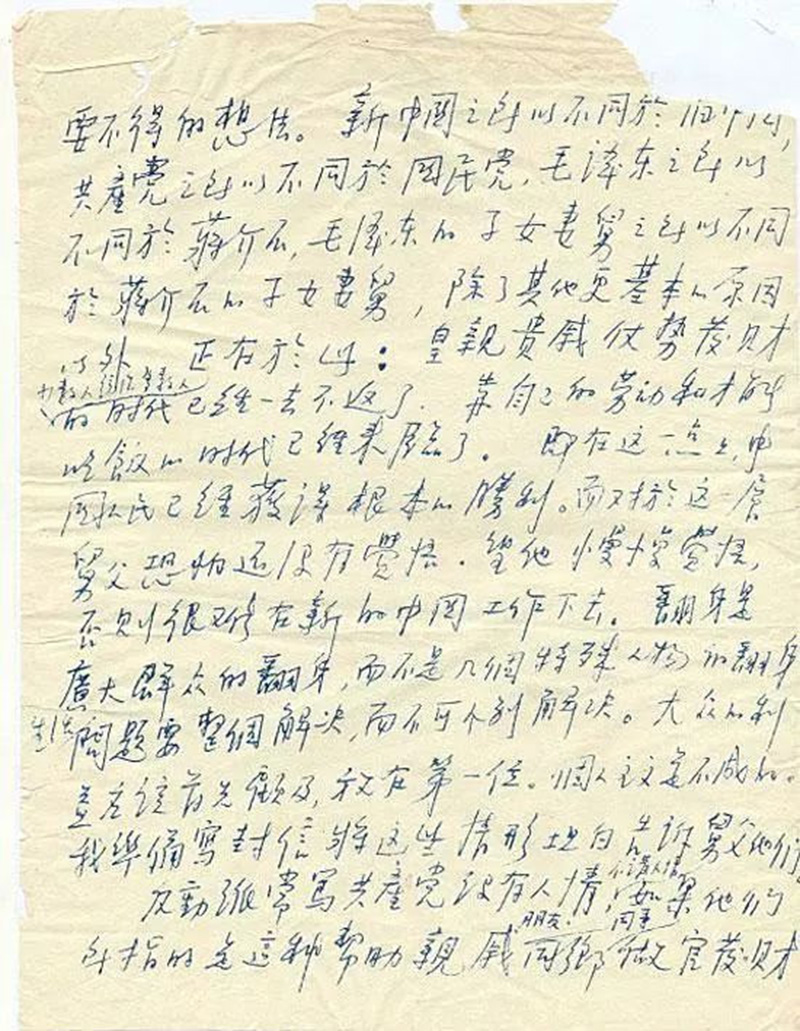 要不得的想法。新中国之所以不同於旧中国,
共產党之所以不同於国民党,毛泽东之所以
不同於蔣介石,毛泽东的子女妻舅之所以不同
於蔣介石的子女妻舅,除了其他更基本的原因
以外 正在於此:皇親貴戚仗势發财
少数人统治多数人
的时代已經一去不返了.靠自己的劳动和才能
吃飯的时代已經来臨了。即在这一点上,中
国人民已經獲得根本的勝利。而对於这一层
舅父恐怕还没有覺悟.望他慢慢覺悟,
否则很难在新的中国工作下去。翻身是
廣大群众的翻身,而不是几個特殊人物的翻身
生活問題要整個解决,而不可个别解决。大众的利
益应该首先顧及,放在第一位。個人主义是不成的。
我準備寫封信將这些情形坦白告訴舅父他们。
反動派常罵共產党没有人情,不讲人情,如果他们
所指的是這种帮助親戚朋友.同鄉同事做官發财